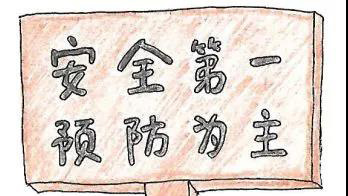 安全第一
预防为主